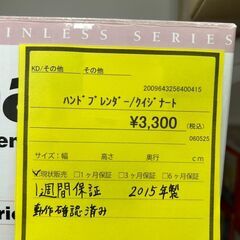 INLESS SERIES
KD/その他 その他
2009643256400415
ハンドブレンダー/クイジナート
¥3,300 (税込)
060525
サイズ:幅 高さ 奥行 cm
☑現状販売 □1ヶ月保証 □3ヶ月保証 □6ヶ月保証
1週間保証 2015年製
動作確認済み